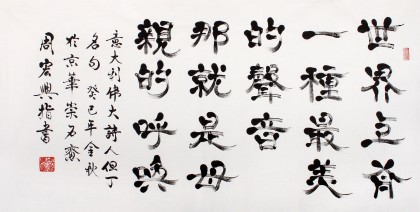 世界上有
一種最美
的聲音
那就是母
親的呼喚
意大利偉大詩人但丁
名句 癸巳年金秋
於京華崇石齋
周宏興指書